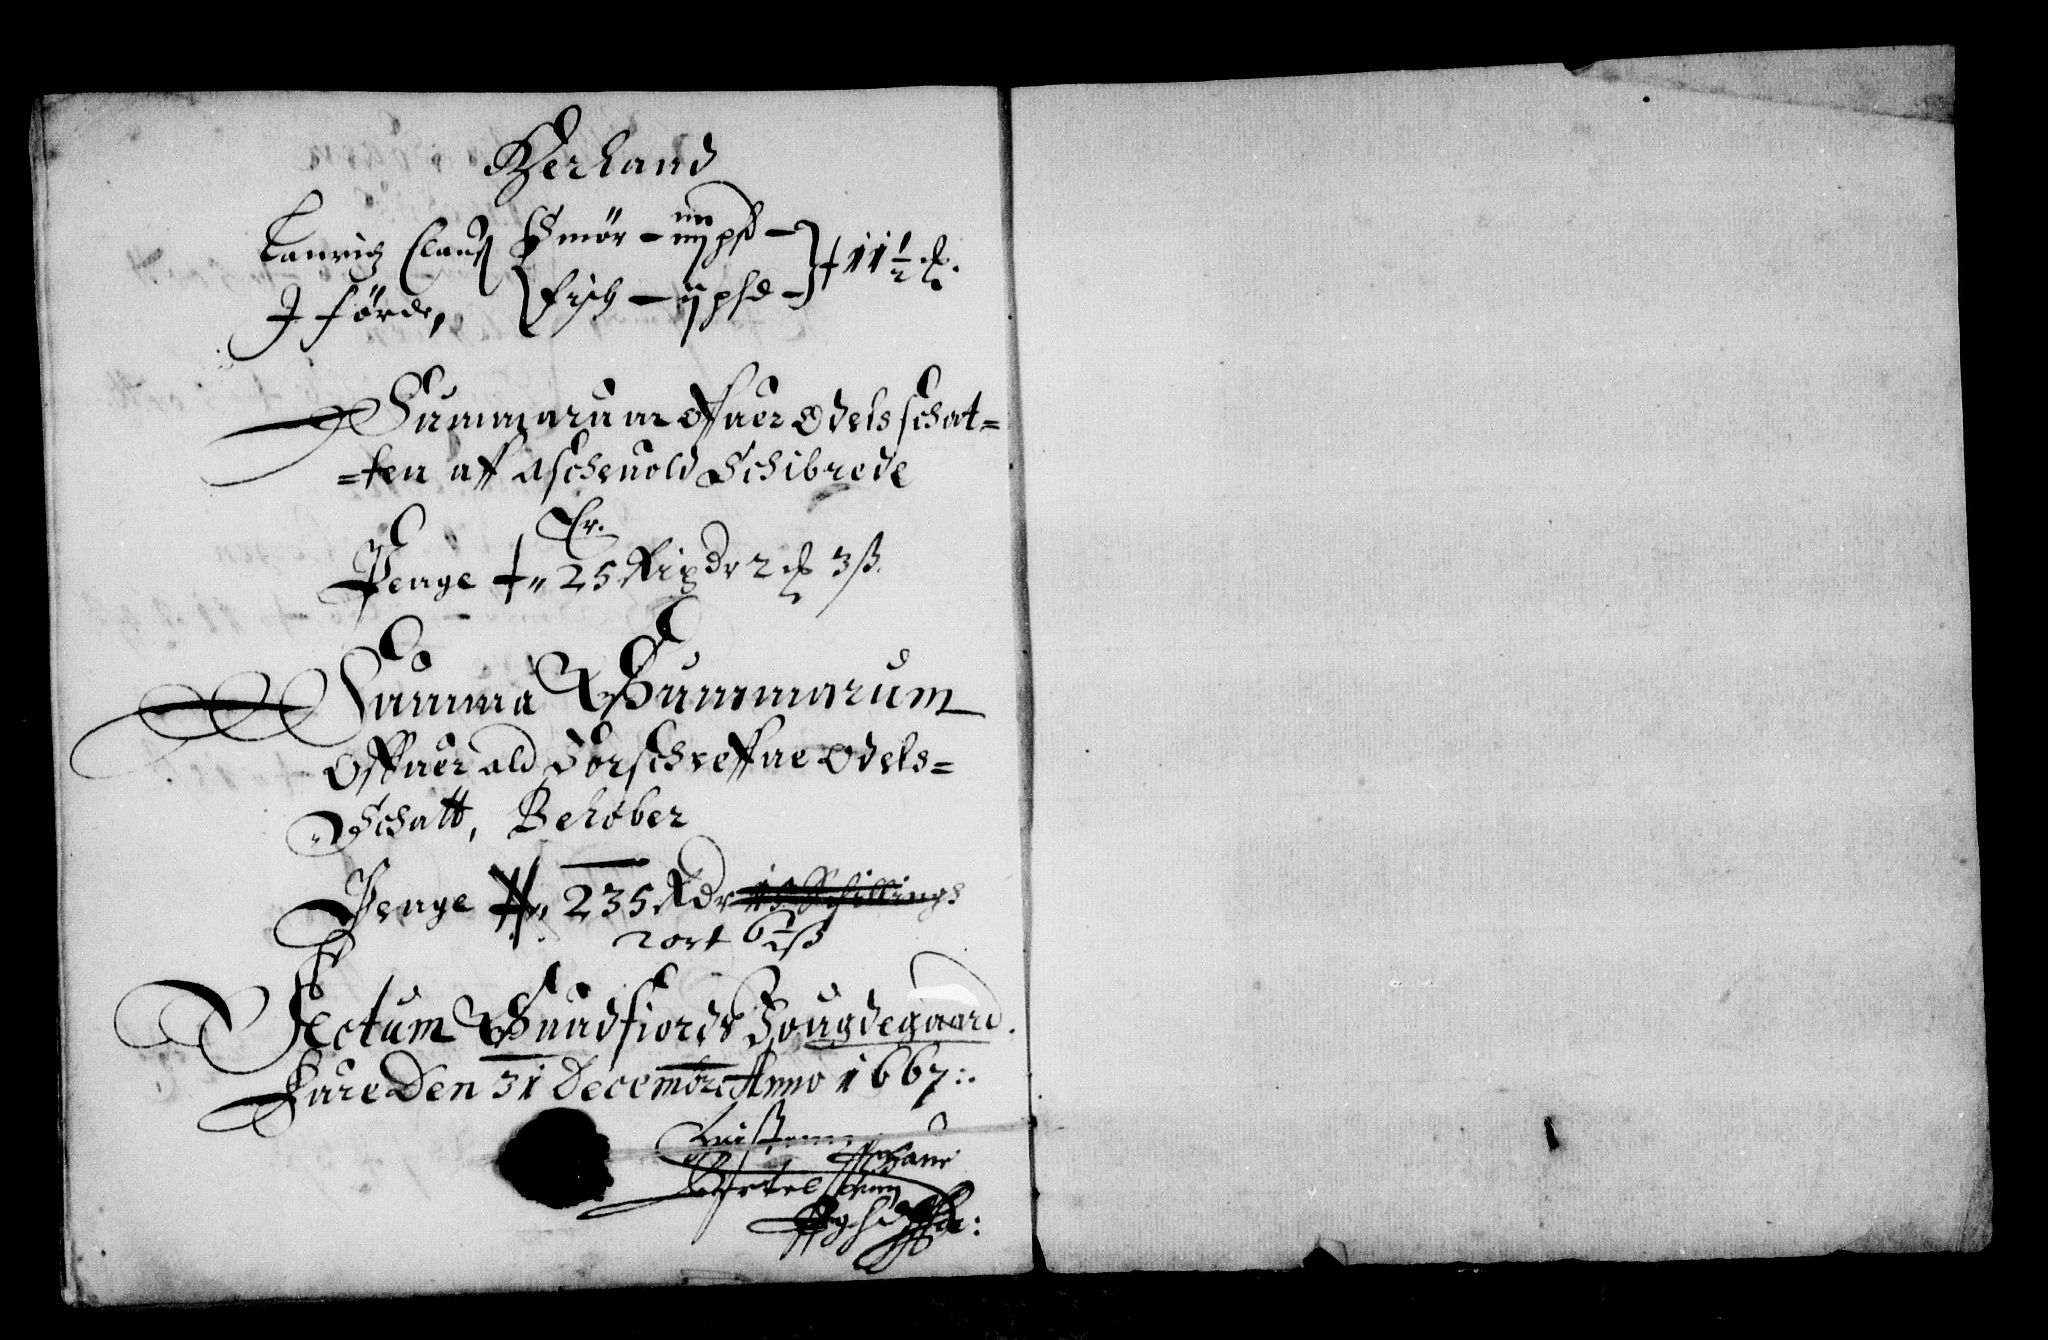 Berland
Lauritz Clauß Smör - iiij pd -
J förde, Fisch - ij psd - 11 ½ ß.
Summarum offuer Odelsschat=
=ten aff Aschevold Schibrede
Er.
Penge + 25 Rixdr 2 ß 3 ß.
Summa Summarum
Offuer ald Forschreffne Odels=
Schatt, Beløber
Penge 235 Rdr 15 Schillings
2 ort 6 ½ ß
Actum Sundfiords Fougdegaard.
Fare Den 31 Decembr Anno 1667:.
Bertelsenn